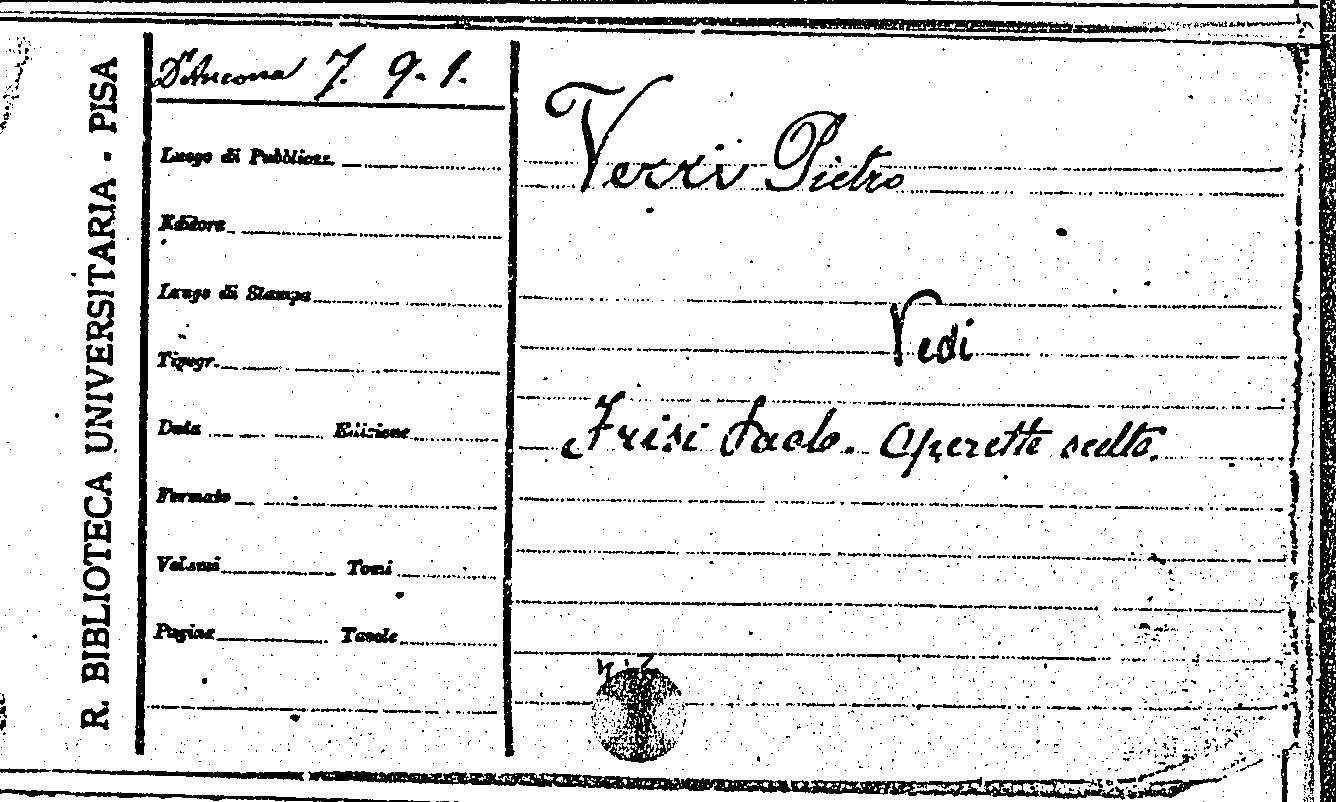 R. BIBLIOTECA UNIVERSITARIA - PISA
D'Ancona 7. 9. 1.
Luogo di Pubblicaz.
Editore
Luogo di Stampa
Tipogr.
Data Edizione
Formato
Volumi Tomi
Pagine Tavole
Verri Pietro
Vedi
Frisi Paolo. Operette scelte.